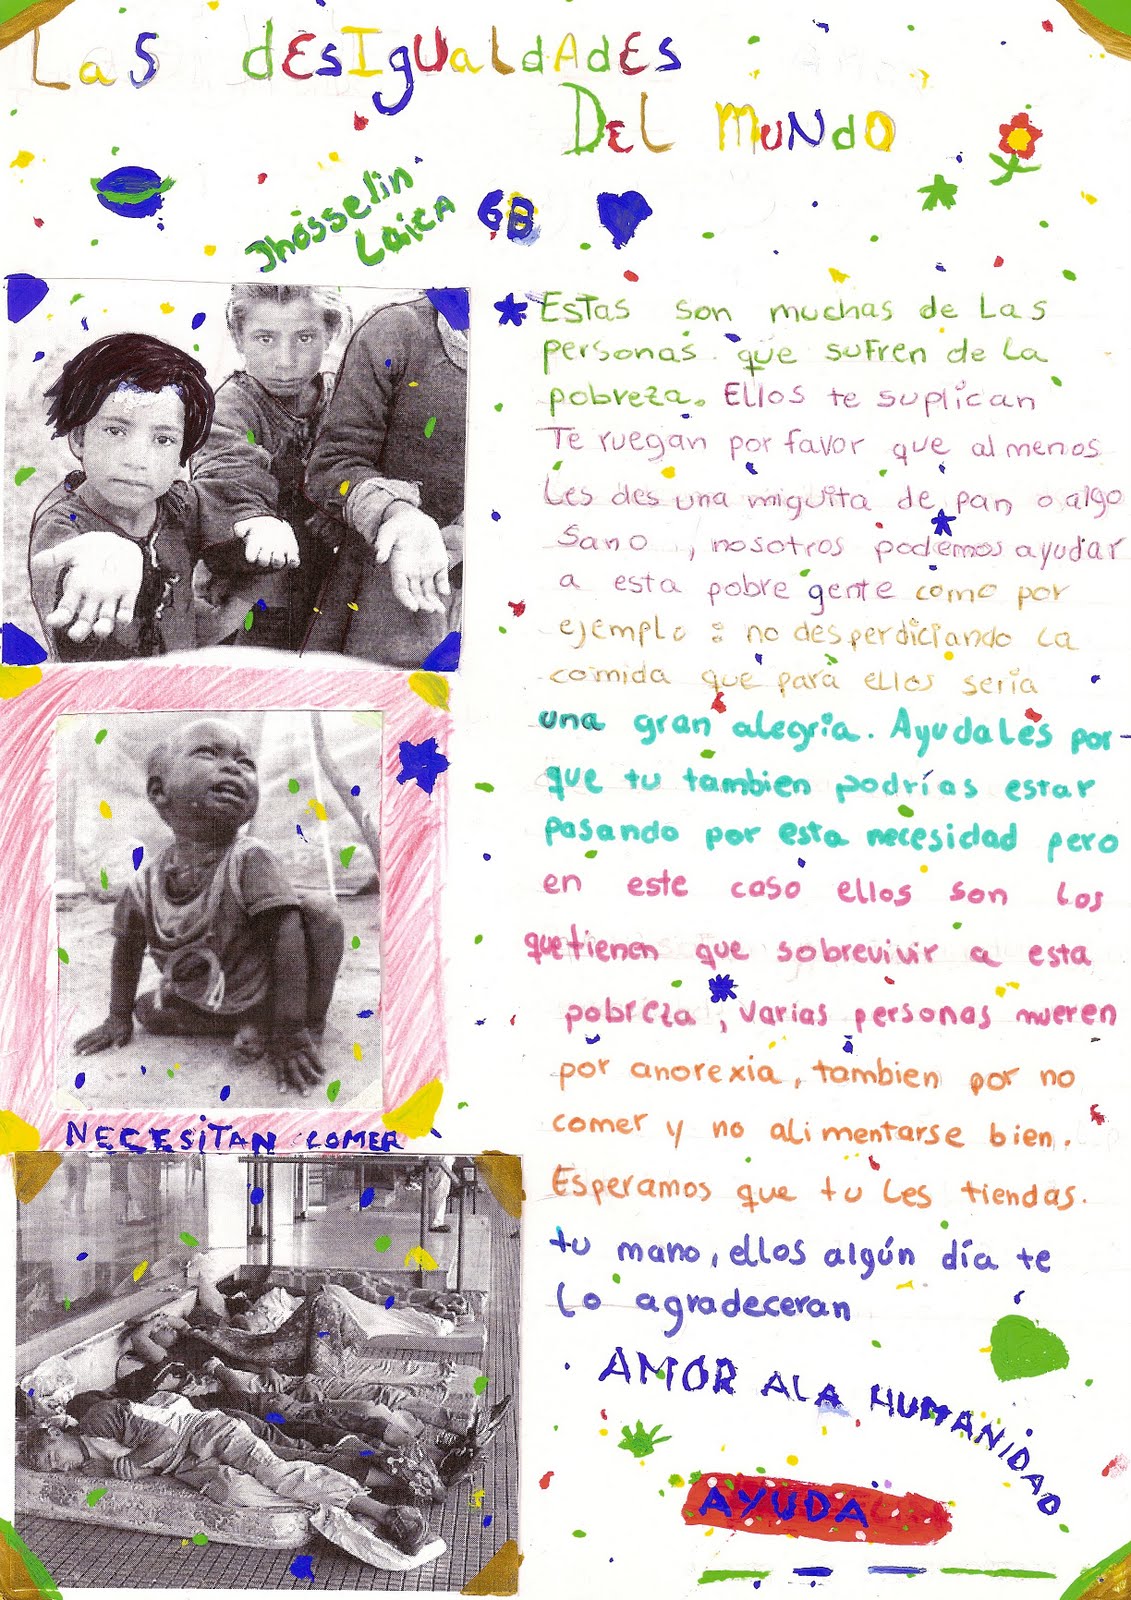 Las desigualdades
Del Mundo
Jhosselin
Laica
6B
Estas son muchas de las
personas que sufren de la
pobreza. Ellos te suplican
Te ruegan por favor que al menos
les des una miguita de pan o algo
sano, nosotros podemos ayudar
a esta pobre gente como por
ejemplo: no desperdiciando la
comida que para ellos seria
una gran alegria. Ayudales por-
que tu tambien podrías estar
pasando por esta necesidad pero
en este caso ellos son los
que tienen que sobrevivir a esta
pobreza, varias personas mueren
por anorexia, tambien por no
comer y no alimentarse bien.
Esperamos que tu les tiendas.
tu mano, ellos algún día te
lo agradeceran
NECESITAN COMER
AMOR A LA HUMANIDAD
AYUDA